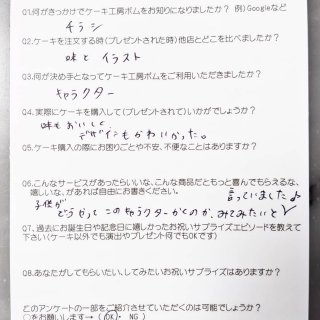 Q1.何がきっかけでケーキ工房ボムをお知りになりましたか? 例)Googleなど
チラシ
Q2.ケーキを注文する時(プレゼントされた時)他店とどこを比べましたか?
味と イラスト
Q3.何が決め手となってケーキ工房ボムをご利用いただきましたか?
キャラクター
Q4.実際にケーキを購入して(プレゼントされて)いかがでしょうか?
味もおいしく
デザインもかわいかった。
Q5.ケーキ購入の際にお困りごとや不安、不便なことはありますか?
Q6.こんなサービスがあったらいいな、こんな商品だともっと喜んでもらえるな、
嬉しいな、があれば自由にお書きください。
言っていました♪
子供が
どうやって このキャラクターかくのか、みてみたいと
Q7、過去にお誕生日や記念日に嬉しかったお祝いサプライズエピソードを教えて
下さい(ケーキ以外でも演出やプレゼント何でもOKです)
Q8.あなたがしてもらいたい、してみたいお祝いサプライズはありますか?
このアンケートの一部をご紹介させていただくのは可能でしょうか?
○をお願いします→ ( OK ・ NG )